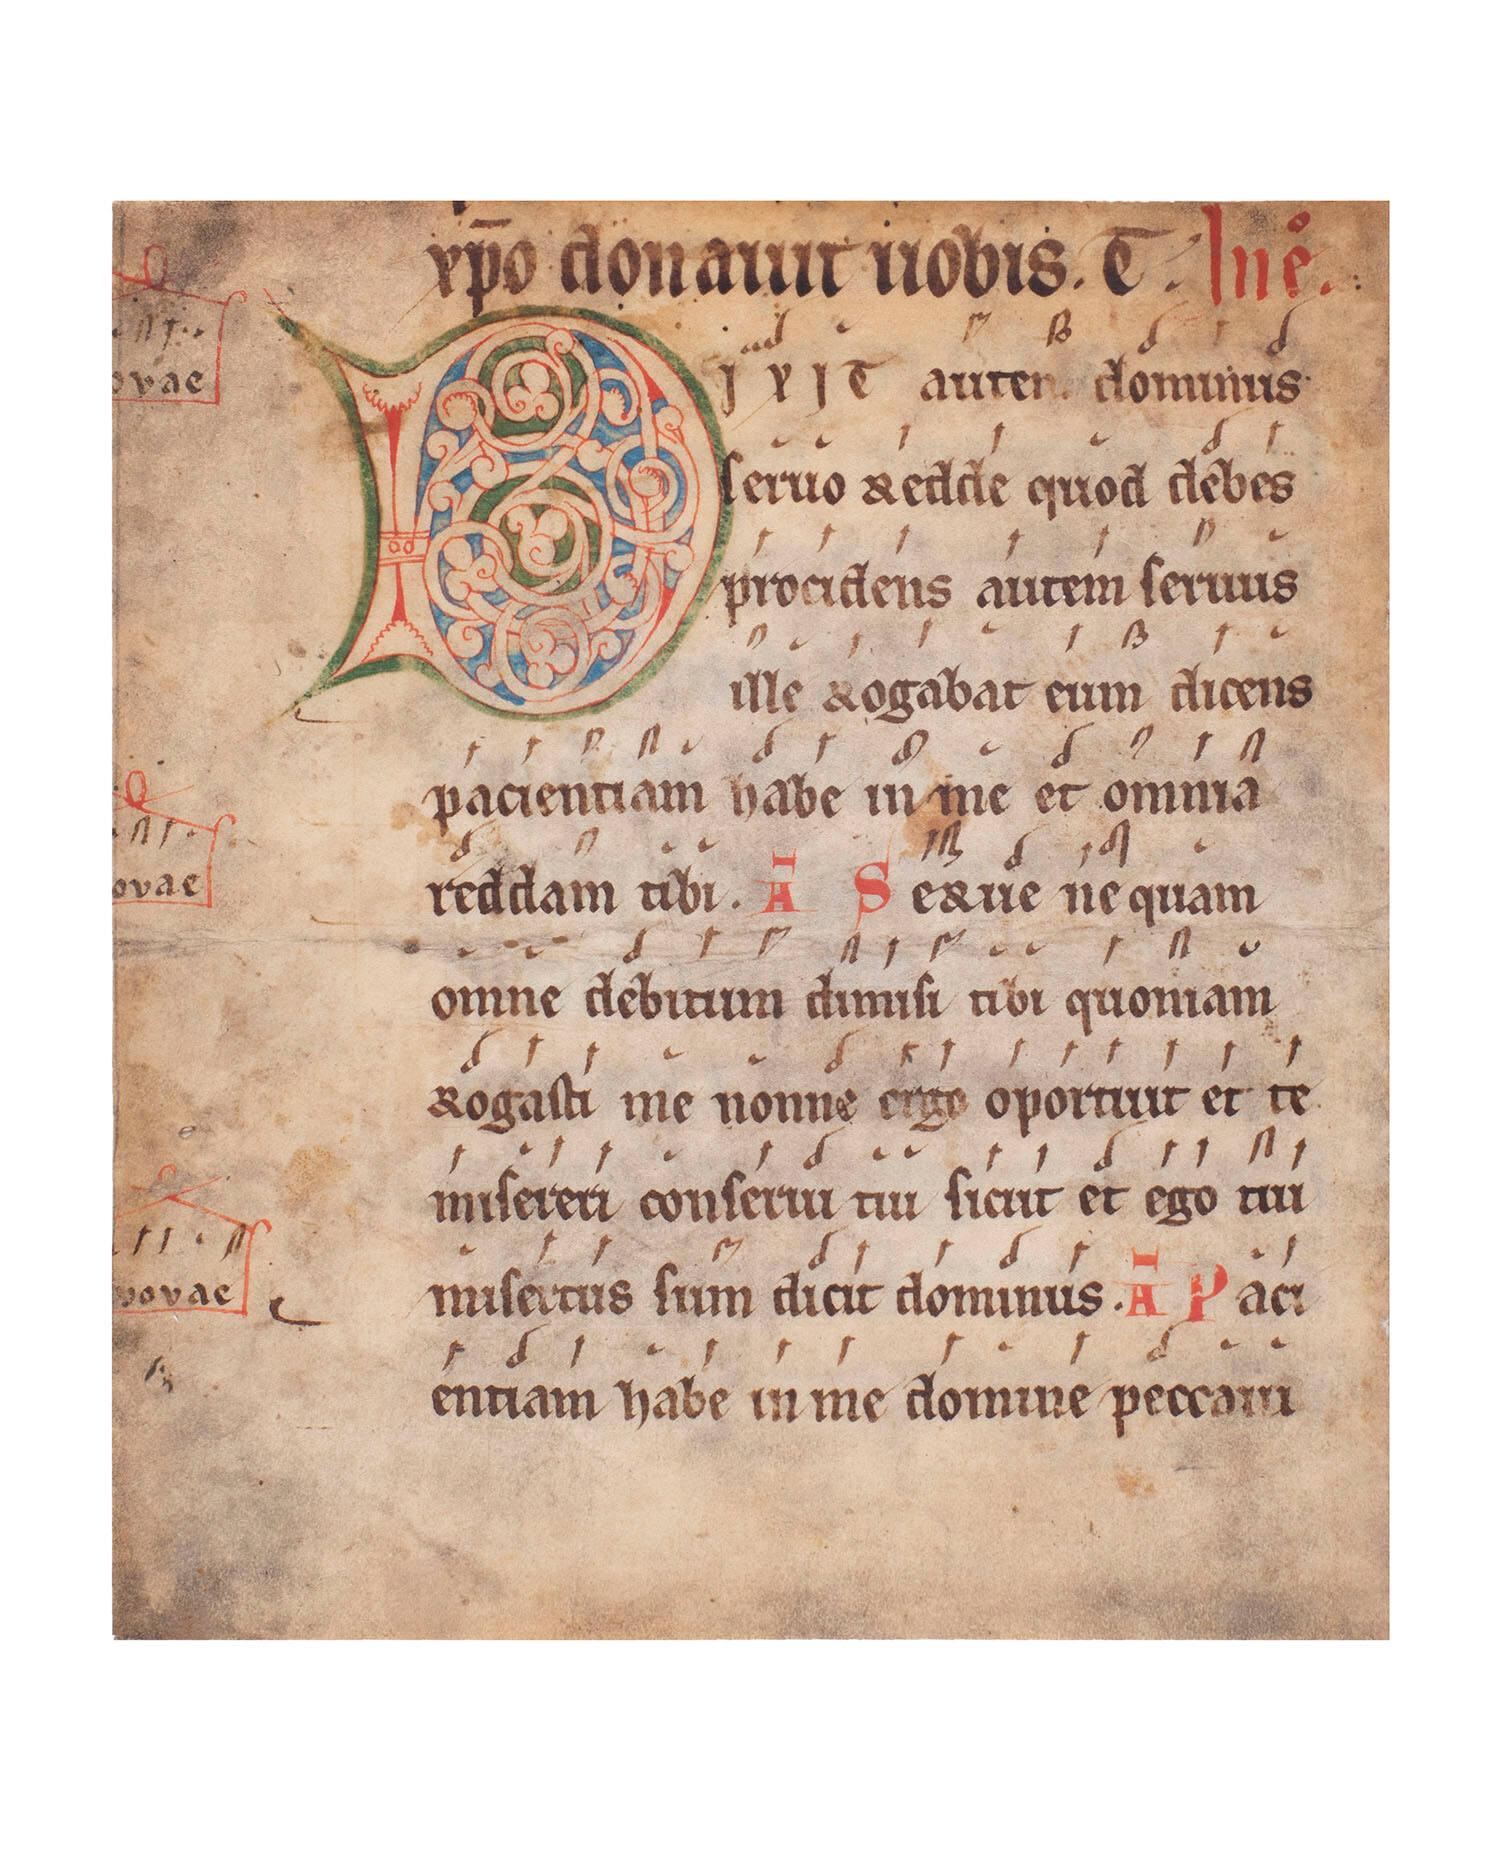 xp̄o donauit uobis. T. In eͦ.
Dixit autem dominus
seruo Redde quod debes
procidens autem seruus
ille Rogabat eum dicens
pacientiam habe in me et omnia
reddam tibi. Ā Serue nequam
omne debitum dimisi tibi quoniam
Rogasti me nonne ergo oportuit et te
misereri conserui tui sicut et ego tui
misertus sum dicit dominus. Ā Paci
entiam habe in me domine peccaui
ovae
ovae
vovae